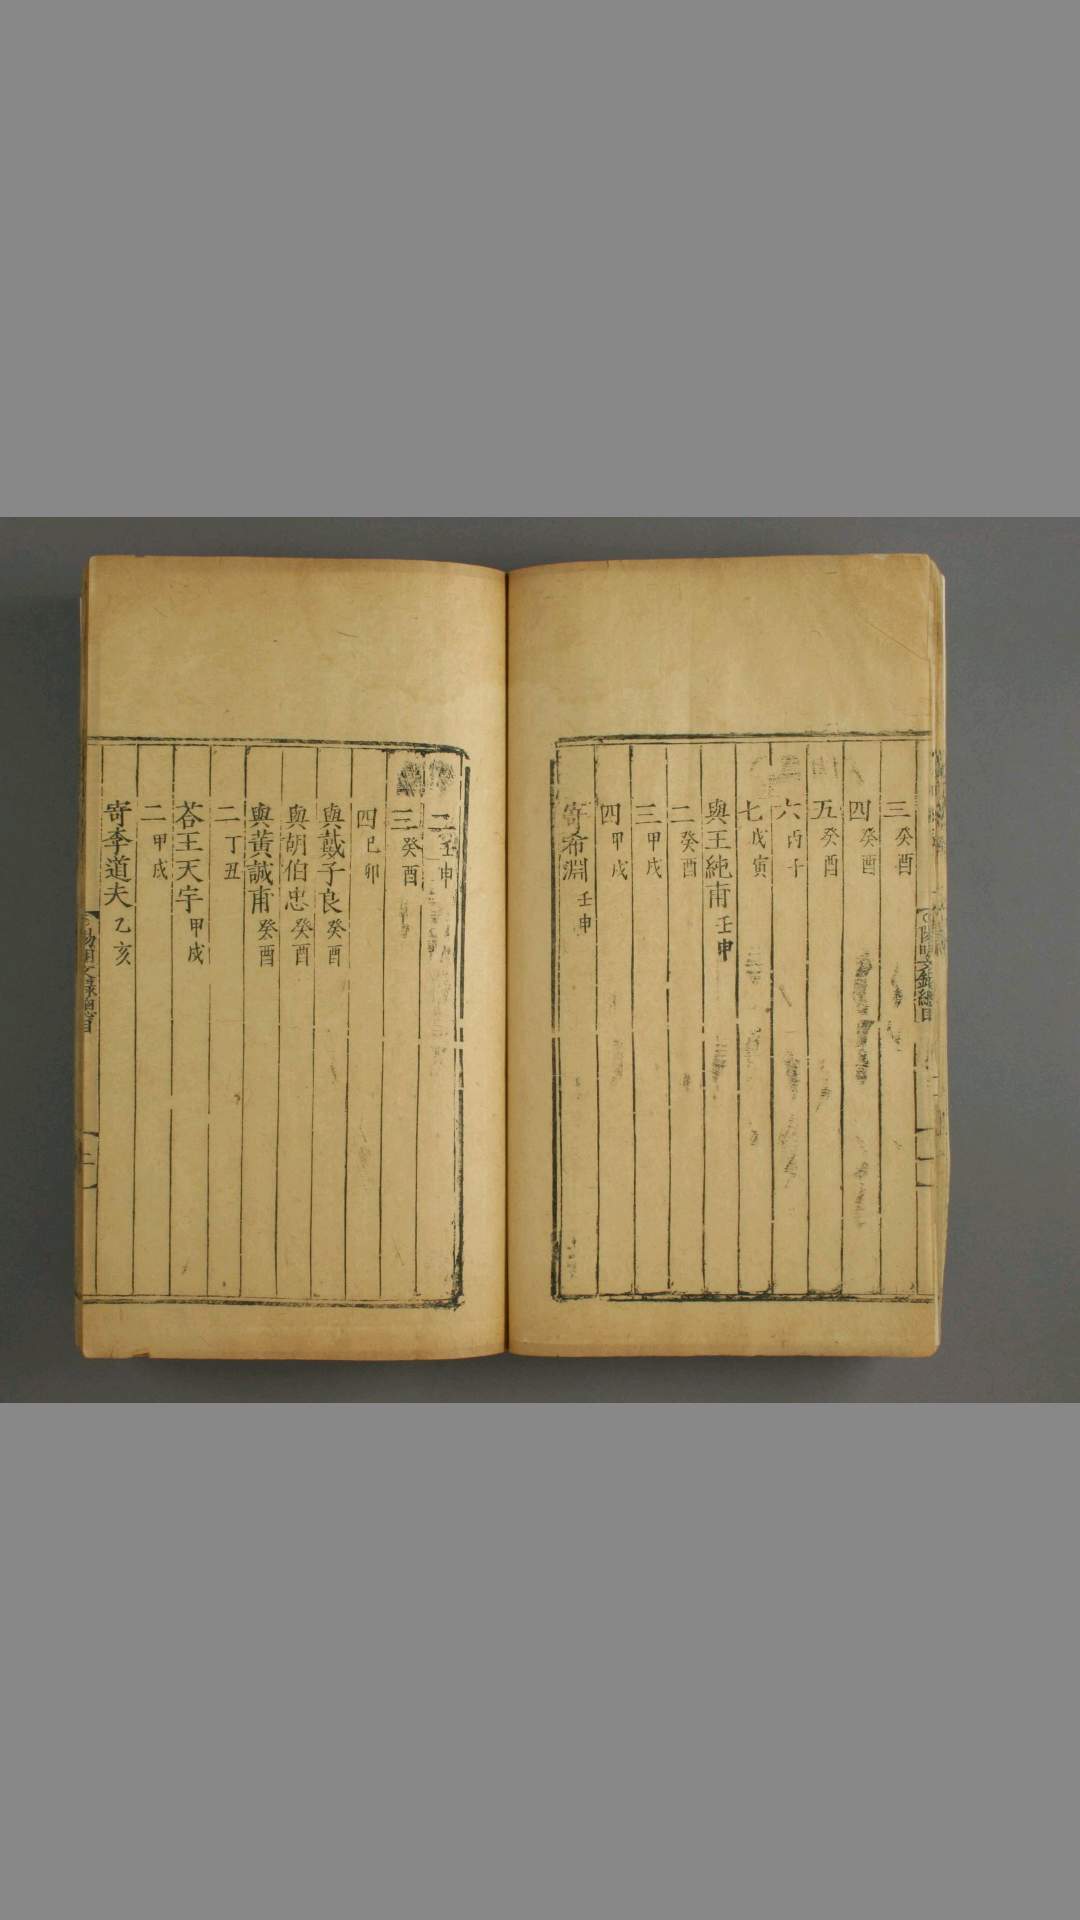 三癸酉
四癸酉
五癸酉
六丙子
七戊寅
與王純甫壬申
二癸酉
三甲戌
四甲戌
寄希淵壬申
二壬申
三癸酉
四己卯
與戴子良癸酉
與胡伯忠癸酉
與黃誠甫癸酉
二丁丑
荅王天宇甲戌
二甲戌
寄李道夫乙亥
陽明文錄總目